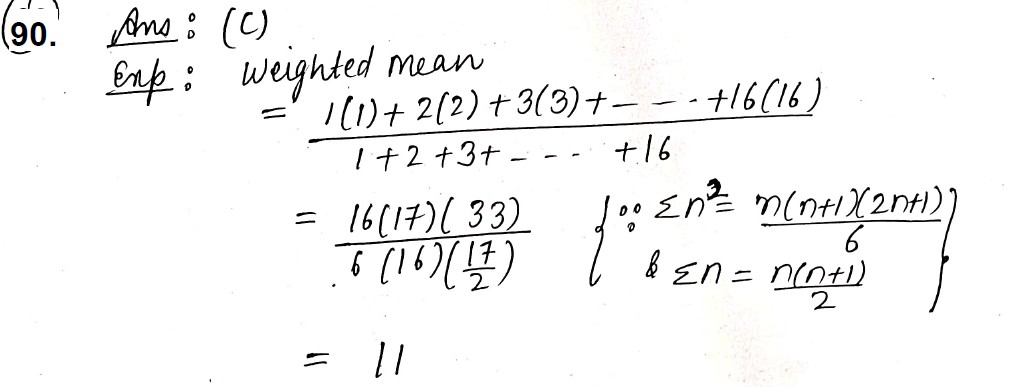 90. Ans : (C)
Exp : Weighted mean
= 1(1) + 2(2) + 3(3) + - - - - +16(16)
1 + 2 + 3 + - - - - +16
= 16(17)(33) { ∵ Σn² = n(n+1)(2n+1)
6 (16)(17/2) 6
& Σn = n(n+1) }
2
= 11